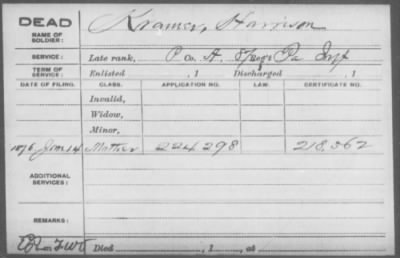 DEAD
NAME OF SOLDIER: Kramer, Harrison
SERVICE: Late rank, P Co. A. Pa Inf
TERM OF SERVICE: Enlisted , 1 Discharged , 1
DATE OF FILING. CLASS. APPLICATION NO. LAW. CERTIFICATE NO.
Invalid,
Widow,
Minor,
1876 Jan 14 Mother 224298 218.562
ADDITIONAL SERVICES:
REMARKS:
Died , 1 , at